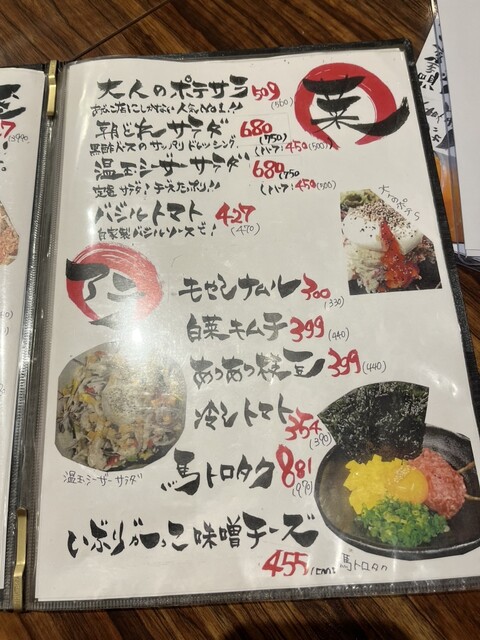 大人のポテサラ 509 (560)
菜
朝どれサラダ 680 (750)
黒酢ベースのサッパリドレッシング (ハーフ:450(500))
温玉シーザーサラダ 680 (750
定番サラダ!チーズたっぷり!! (ハーフ:450(500)
バジルトマト 427 (470)
自家製バジルソースで!
大人のポテサラ
モヤシナムル 300 (330)
白菜キムチ 399 (440)
あつあつ枝豆 399 (440)
冷シトマト 354 (390)
馬トロタク 881 (970)
温玉シーザーサラダ
いぶりがっこ味噌チーズ
455
馬トロタク